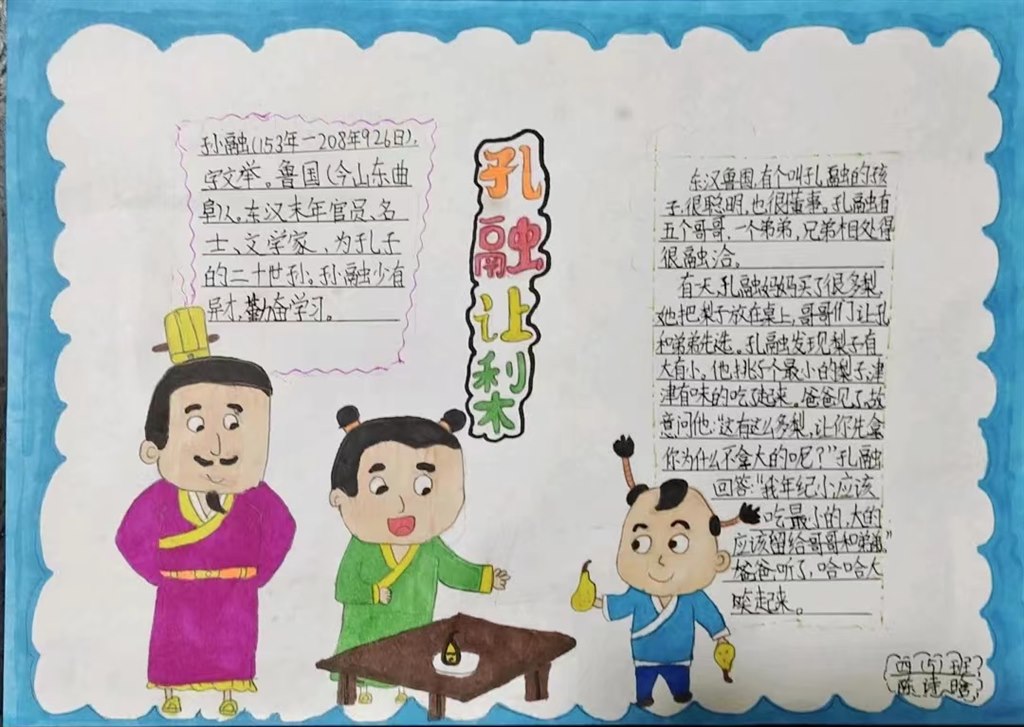 孙融(153年－208年926日),
字文举。鲁国(今山东曲
阜)人。东汉末年官员、名
士、文学家，为孔子
的二十世孙。孙融少有
异才,勤奋学习。
孔融让利木
东汉鲁国,有个叫孔融的孩
子,很聪明,也很懂事。孔融有
五个哥哥,一个弟弟,兄弟相处得
很融洽。
有天,孔融妈妈买了很多梨,
她把梨子放在桌上,哥哥们让孔
和弟弟先选。孔融发现梨子有
大有小,他挑了个最小的梨子,津
津有味的吃了起来。爸爸见了,故
意问他:"这有这么多梨,让你先拿
你为什么不拿大的呢？"孔融
回答:"我年纪小,应该
吃最小的,大的
应该留给哥哥和弟弟。"
爸爸听了,哈哈大
起来。
四(5)班
陈诗晗